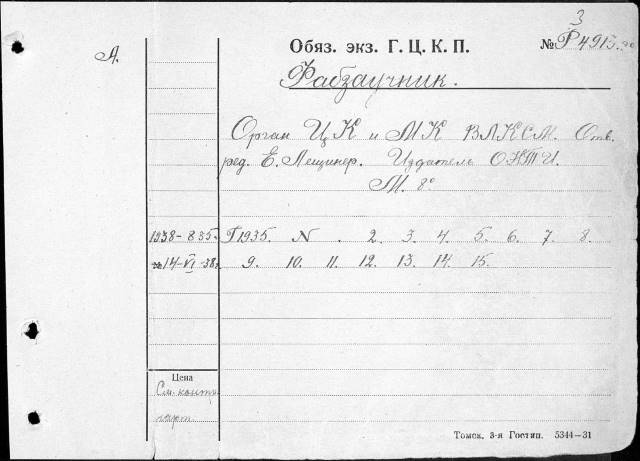 3
А.
Обяз. экз. Г. Ц. К. П.
№ Р4915.
Фабзаучник.
Орган ЦК и МК ВЛКСМ. Отв.
ред. Е. Лещинер. Издатель ОНТИ.
М. 8°
1938 - 8 35. 1935. N . 2. 3. 4. 5. 6. 7. 8.
14-VI-38. 9. 10. 11. 12. 13. 14. 15.
Цена
См. контр.
карт.
Томск. 3-я Гостип. 5344—31